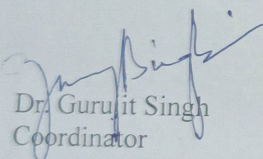 Dr. Gurujit Singh
Coordinator